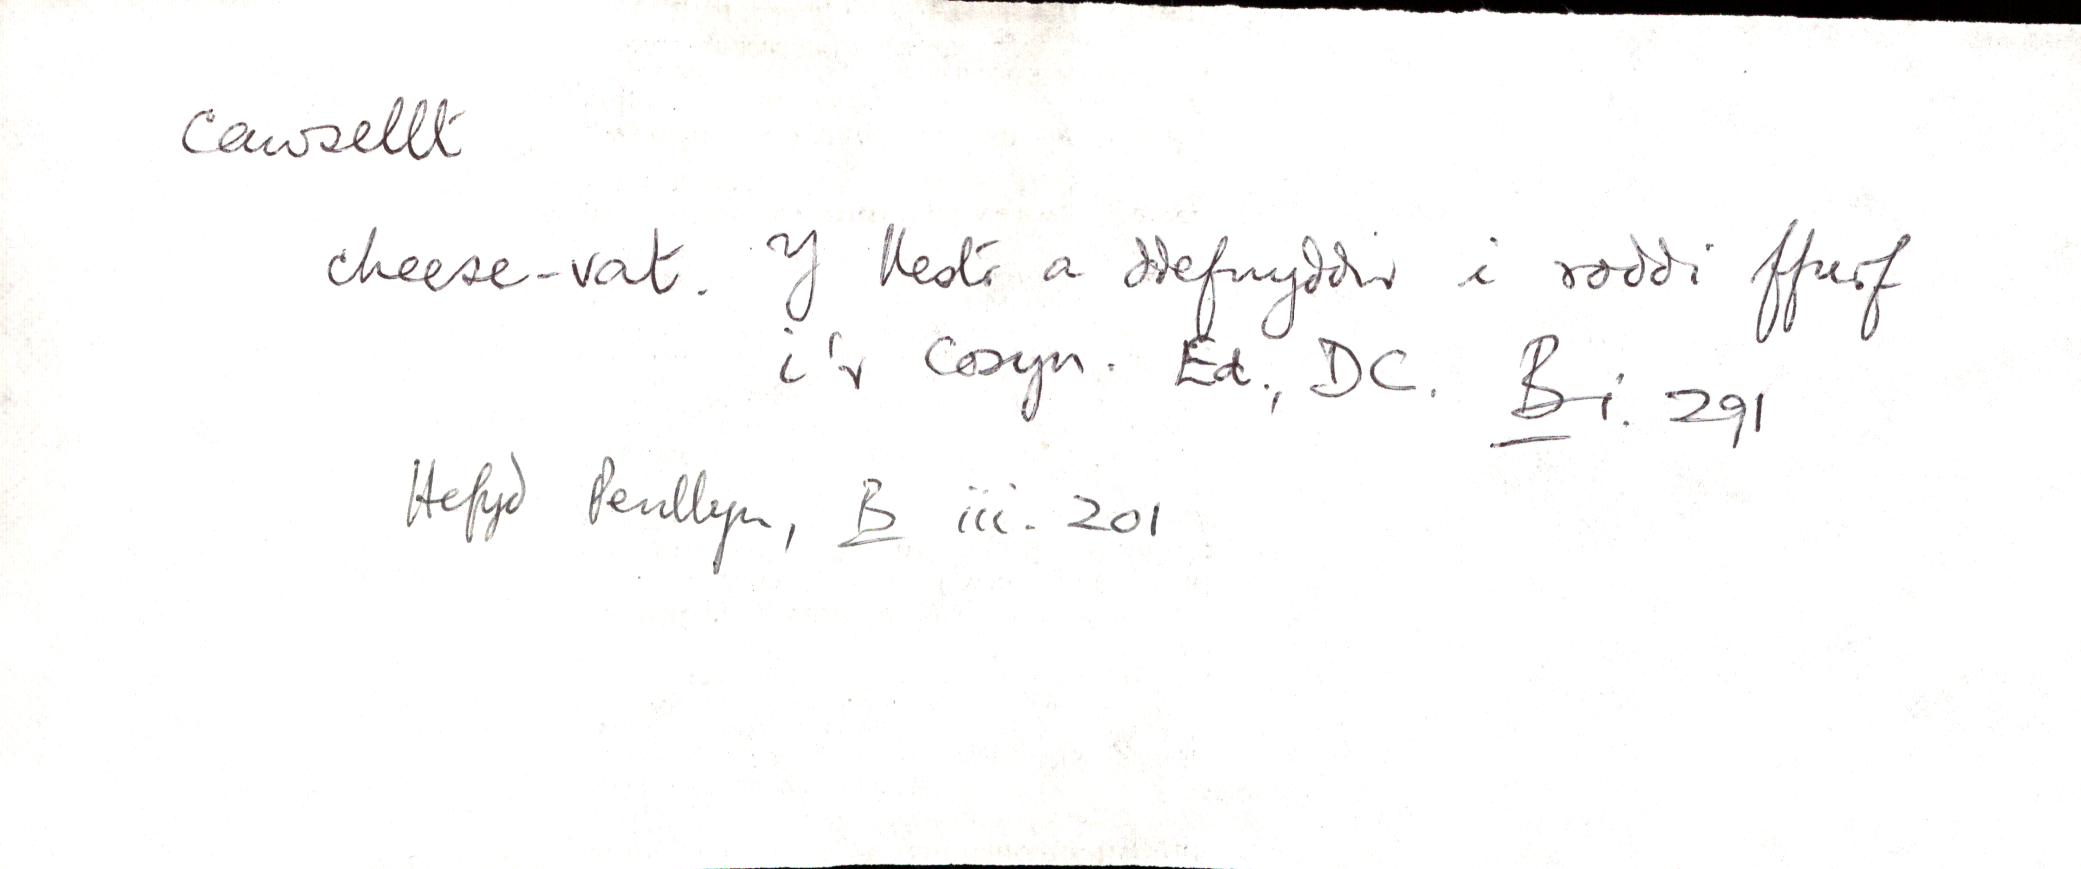 cawsellt
cheese-vat. Y llestr a ddefnyddir i roddi ffurf
i'r cosyn. Ed., DC. B i. 291
Hefyd Penllyn, B iii. 201